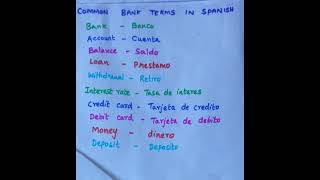 COMMON BANK TERMS IN SPANISH
Bank - Banco
Account - Cuenta
Balance - Saldo
Loan - Prestamo
Withdrawal - Retiro
Interest rate - Tasa de interes
Credit card - Tarjeta de credito
Debit card - Tarjeta de debito
Money - dinero
Deposit - Deposito